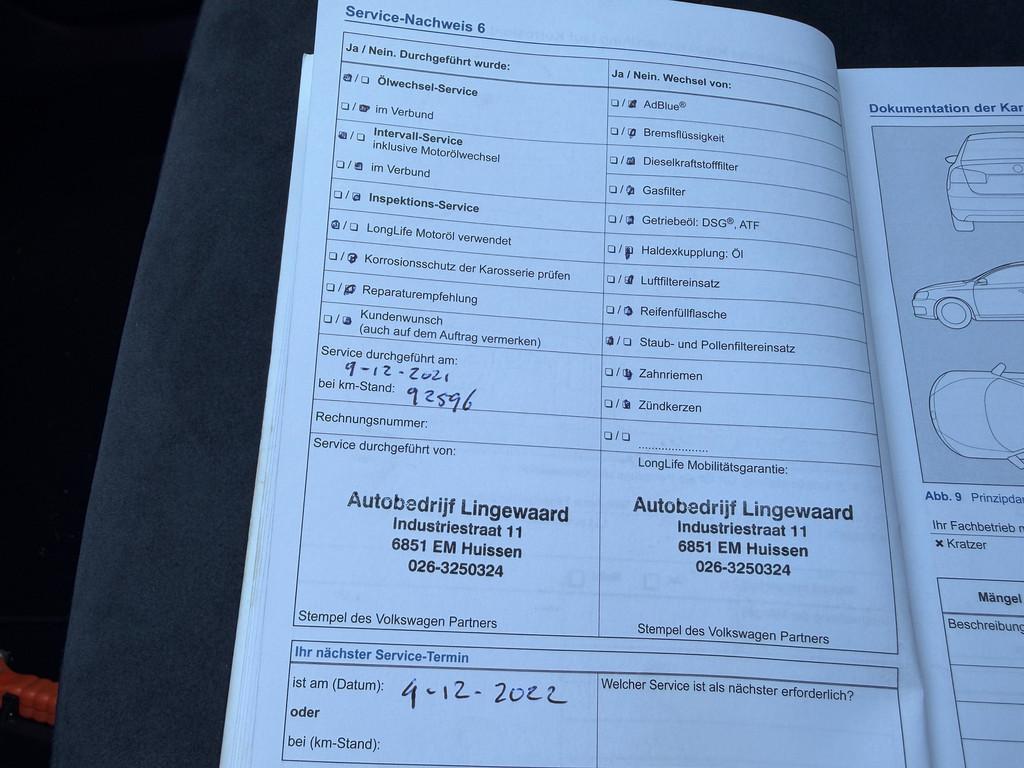 Service-Nachweis 6
Ja / Nein. Durchgeführt wurde:
Ölwechsel-Service
im Verbund
Intervall-Service
inklusive Motorölwechsel
im Verbund
Inspektions-Service
LongLife Motoröl verwendet
Korrosionsschutz der Karosserie prüfen
Reparaturempfehlung
Kundenwunsch
(auch auf dem Auftrag vermerken)
Service durchgeführt am:
9-12-2021
bei km-Stand: 92596
Rechnungsnummer:
Service durchgeführt von:
Autobedrijf Lingewaard
Industriestraat 11
6851 EM Huissen
026-3250324
Stempel des Volkswagen Partners
Ja / Nein. Wechsel von:
AdBlue®
Bremsflüssigkeit
Dieselkraftstofffilter
Gasfilter
Getriebeöl: DSG®, ATF
Haldexkupplung: Öl
Luftfiltereinsatz
Reifenfüllflasche
Staub- und Pollenfiltereinsatz
Zahnriemen
Zündkerzen
LongLife Mobilitätsgarantie:
Autobedrijf Lingewaard
Industriestraat 11
6851 EM Huissen
026-3250324
Stempel des Volkswagen Partners
Ihr nächster Service-Termin
ist am (Datum): 9-12-2022
oder
bei (km-Stand):
Welcher Service ist als nächster erforderlich?
Dokumentation der Kar
Abb. 9 Prinzipdar
Ihr Fachbetrieb
× Kratzer
Mängel
Beschreibung